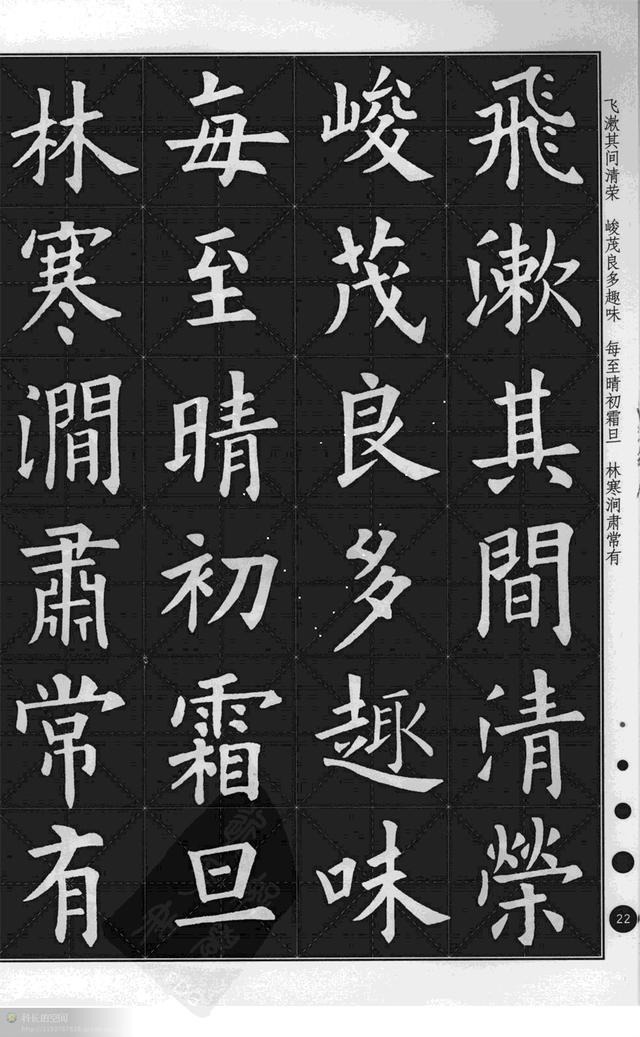 飛漱其間清榮
峻茂良多趣味
每至晴初霜旦
林寒澗肅常有
飞漱其间清荣 峻茂良多趣味 每至晴初霜旦 林寒涧肃常有
22
科长的空间